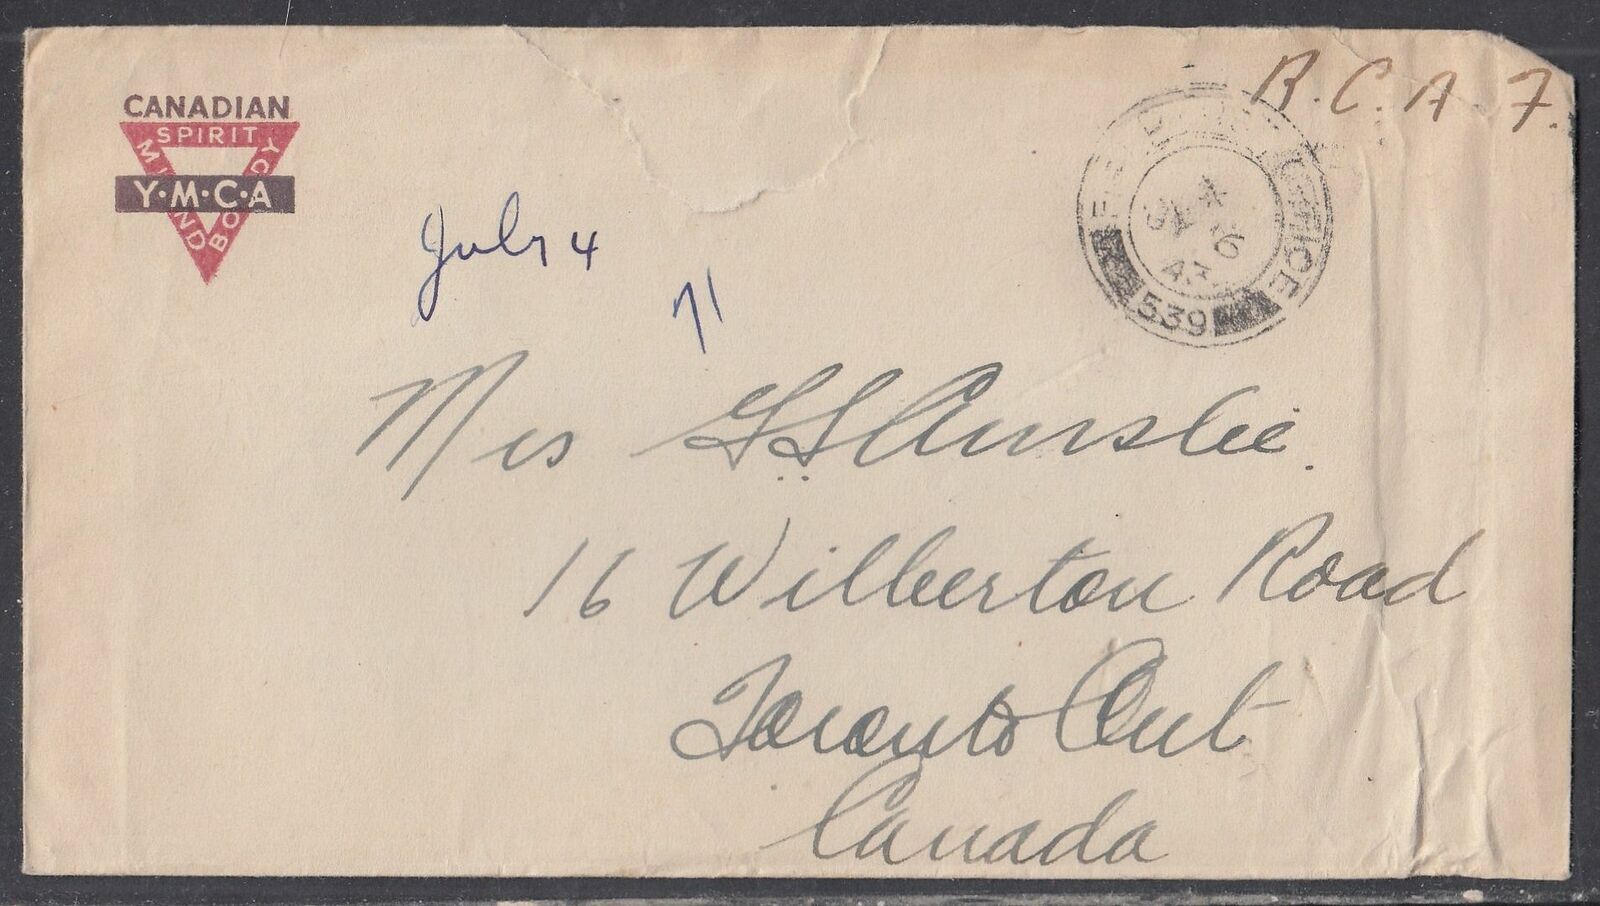 CANADIAN
SPIRIT
MIND
BODY
Y·M·C·A
R.C.A.F.
FIELD POST OFFICE
JY 6
43
539
July 4
71
Mrs G S Ainslie.
16 Wilberton Road
Toronto Ont
Canada